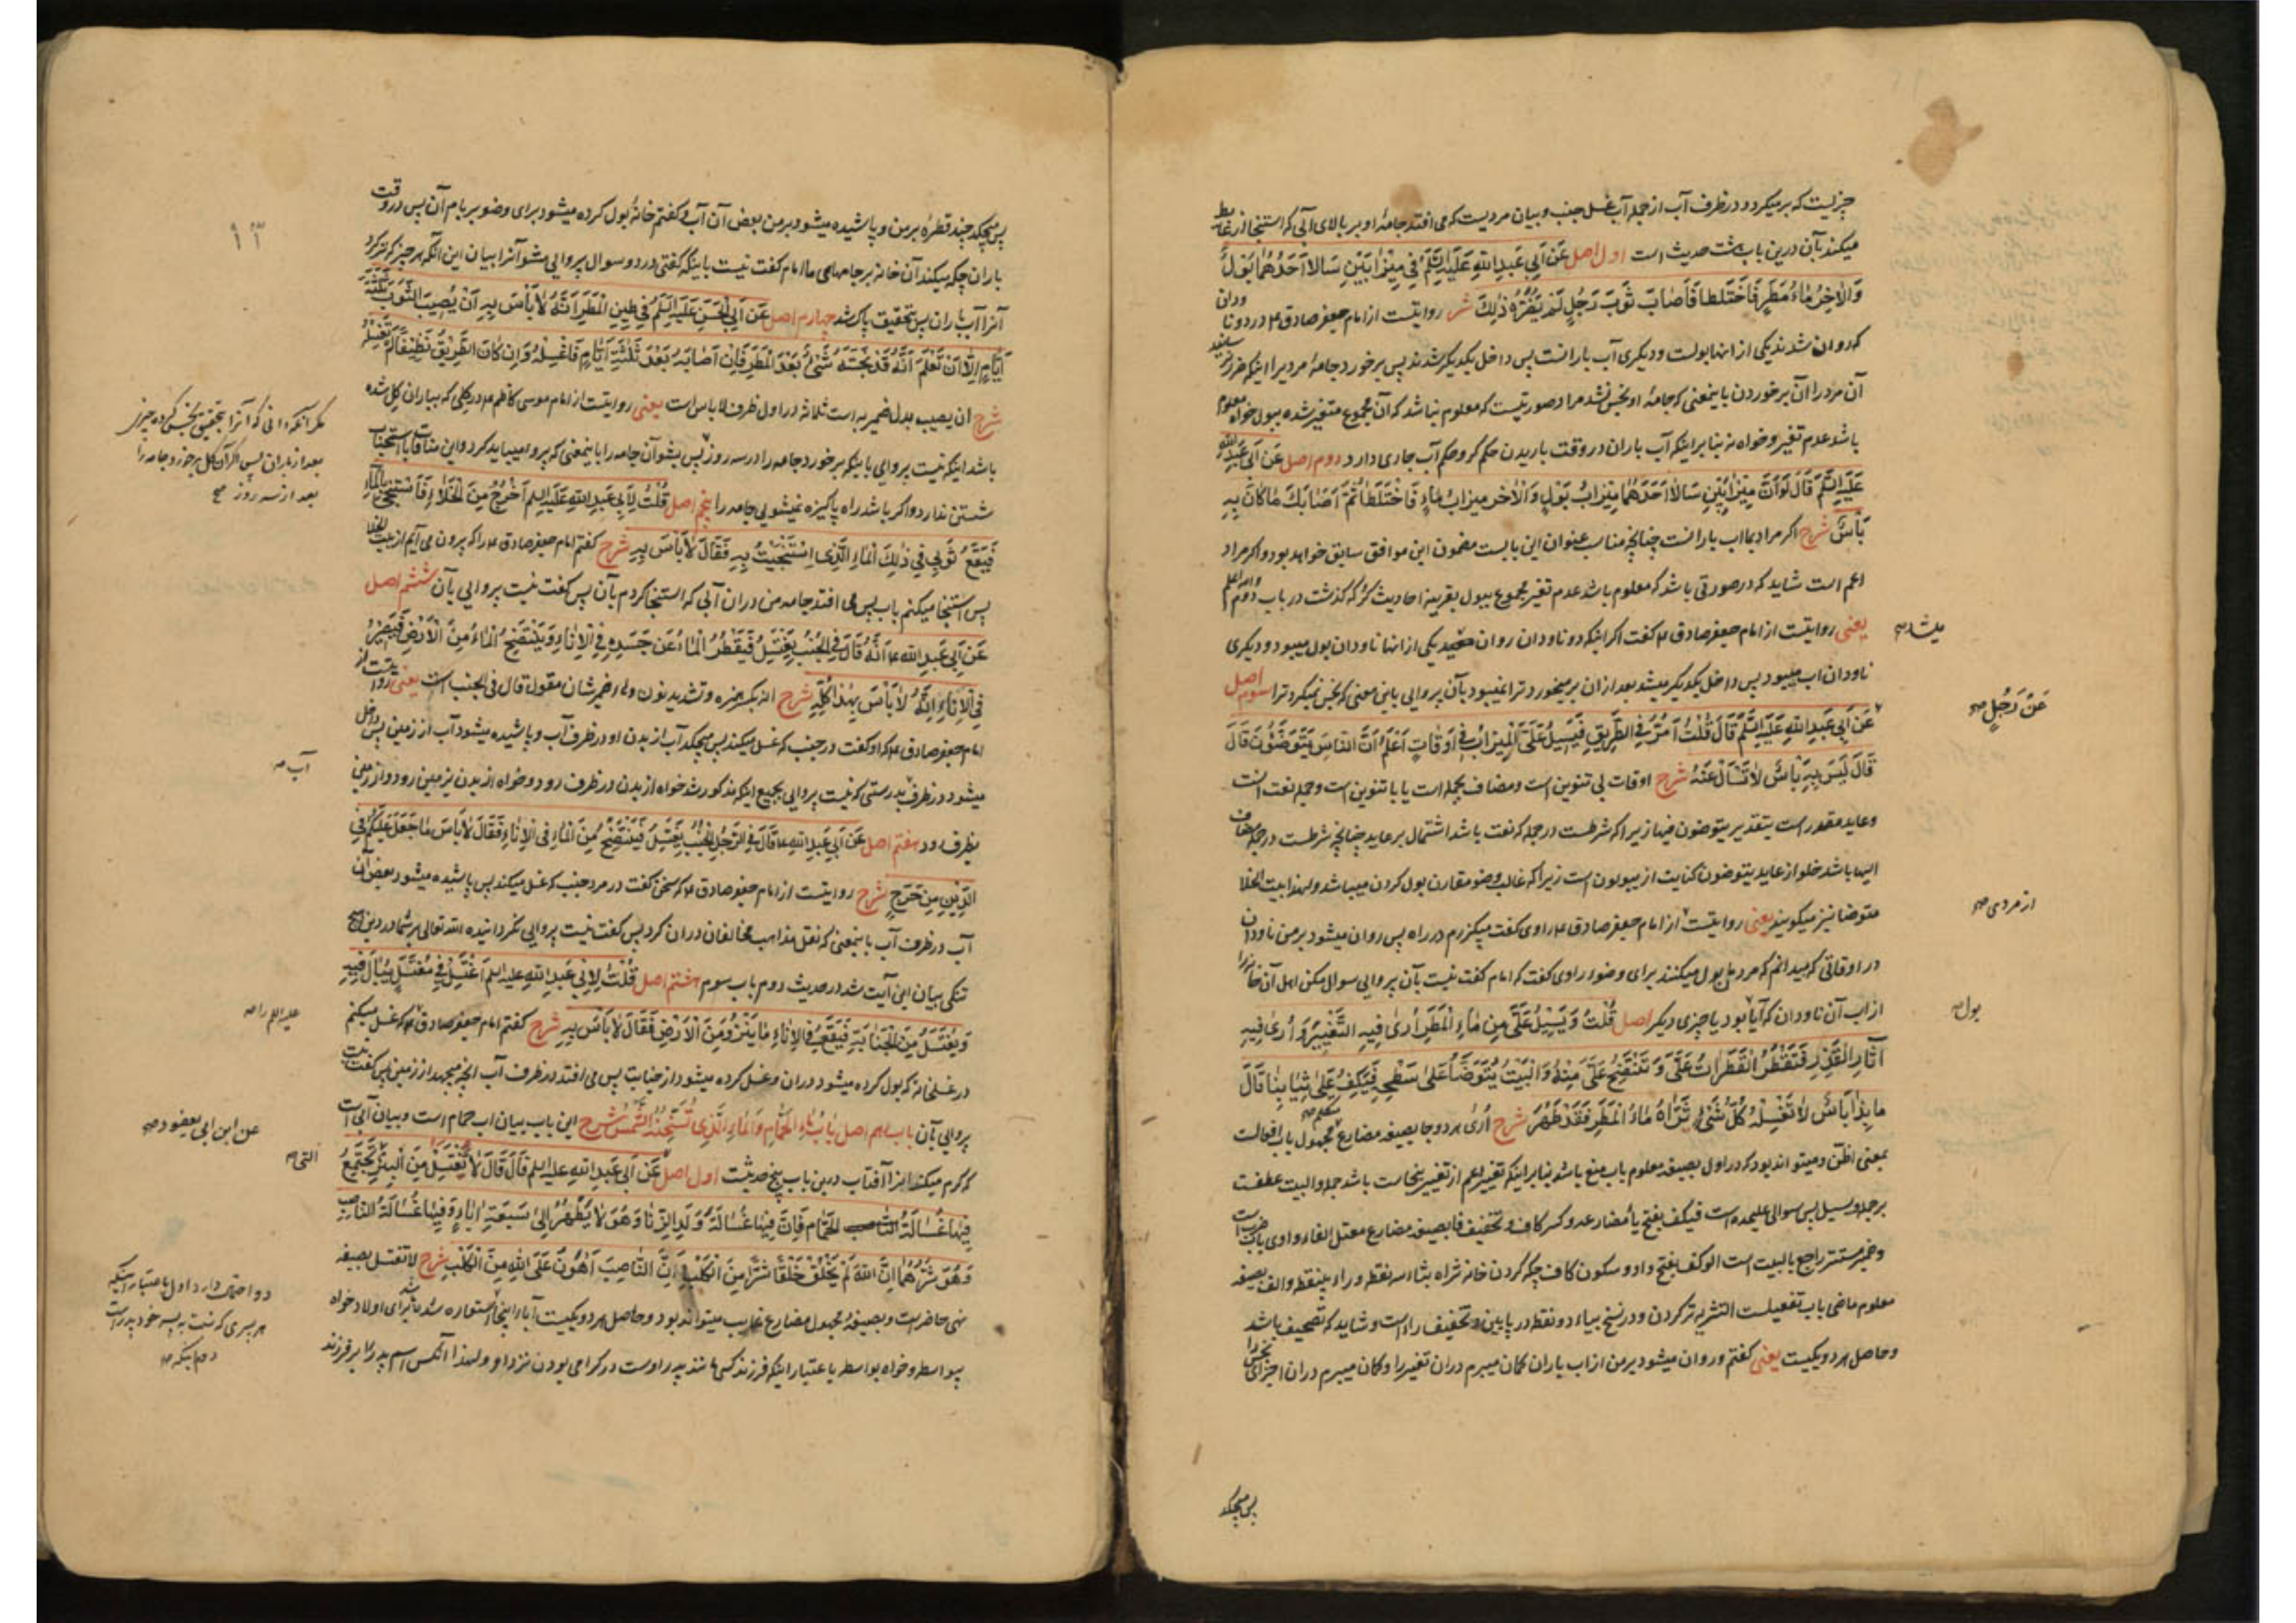 چیزیست که برمیگردد در ظرف آب از جمله آب غسل جنب و بیان مردیست که می افتد جامهٔ او بر بالای آبی که استنجا از غایط
میکند بآن درین باب هشت حدیث است اول اصل عَن اَبی عَبدِ اللهِ عَلَیهِ السَّلَم فی میزابَینِ سَالا اَحَدُهُما بَولٌ
وَالاٰخِرُ ماءُ مَطَرٍ فَاختَلَطا فَاَصابَ ثَوبَ رَجُلٍ لَم یَضُرَّهُ ذلِكَ شر روایتست از امام جعفر صادق ع م در دو ناودان
که روان شدند یکی از انها بولست و دیگری آب بارانست پس داخل یکدیگر شدند پس برخورد جامهٔ مردیرا اینکه ضرر نرسانید
آن مرد را آن برخوردن باینمعنی که جامهٔ او نجس نشد مراد صورتیست که معلوم نباشد که آن مجموع متغیر شده ببول خواه معلوم
باشد عدم تغیر و خواه نه بنا بر اینکه آب باران در وقت باریدن حکم کر و حکم آب جاری دارد دوم اصل عَن اَبی عَبدِ الله
عَلَیهِ السَّلَم قالَ لَو اَنَّ میزابَینِ سَالا اَحَدُهُما میزابُ بَولٍ وَالاٰخر میزابُ ماءٍ فَاختَلَطا ثُمَّ اَصابَكَ ماکانَ بِهِ
بَأسٌ شرح اکر مراد بماء اب بارانست چنانچه مناسب عنوان این بابست مضمون این موافق سابق خواهد بود و اکر مراد
اعم است شاید که در صورتی باشد که معلوم باشد عدم تغیر مجموع ببول بقرینه احادیث کر که گذشت در باب دوم والله اعلم
یعنی روایتست از امام جعفر صادق ع م کفت اکر اینکه دو ناودان روان میشد یکی از انها ناودان بول میبود و دیکری
میشد صح
ناودان اب میبود پس داخل یکدیکر میشد بعد ازان برمیخورد ترا نمیبود بآن پروایی باین معنی که نجس نمیکرد ترا سوم اصل
عَن رَجُلٍ صح
عَن اَبی عَبدِ اللهِ عَلَیهِ السَّلَم قالَ قُلتُ اَمُرُّ فِی الطَّریقِ فَیَسیلُ عَلَیَّ المیزابُ فی اَوقاتٍ اَعلَمُ اَنَّ الناسَ یَتَوَضَّئونَ قالَ
قالَ لَیسَ بِهِ بَأسٌ لا تَسأَل عَنهُ شرح اوقات بی تنوین است و مضاف بجمله است یا با تنوین است و جمله نعت انست
وعاید مقدر است بتقدیر یتوضون فیها زیرا که شرطست در جمله که نعت باشد اشتمال بر عاید چنانچه شرطست در جمله مضاف
الیها باشد خلو از عاید یتوضون کنایت از یبولون است زیرا که غالب وضو مقارن بول کردن میباشد و لهذا بیت الخلا
متوضا نیز میکویند یعنی روایتست از امام جعفر صادق ع م راوی کفت میکذرم در راه پس روان میشود بر من ناودان
از مردی صح
در اوقاتی که میدانم که مردمان بول میکنند برای وضو راوی کفت که امام کفت نیست بآن پروایی سوال مکن اهل آن خانه را
از اب آن ناودان که آیا بود یا چیزی دیکر اصل قُلتُ وَیَسیلُ عَلَیَّ مِن ماءِ المَطَرِ اَریٰ فیهِ التَّغَیُّرَ وَ اَریٰ فیهِ
بول صح
آثارَ القَذَرِ فَتَقطُرُ القَطَراتُ عَلَیَّ وَ تَنتَضِحُ عَلَیَّ مِنهُ وَ البَیتُ یُتَوَضَّأُ عَلیٰ سَطحِهِ فَیَکِفُ عَلیٰ ثِیابِنا قالَ
ما بِذا بَأسٌ لا تَغسِلهُ کُلُّ شَیءٍ تَراهُ ماءُ المَطَرِ فَقَد طَهُرَ شرح اُریٰ هر دو جا بصیغه مضارع متکلم مجهول باب افعالست
بمعنی اظن و میتواند بود که در اول بصیغه معلوم باب منع باشد بنابر اینکه تغییر اعم از تغییر بنجاست باشد جمله والبیت عطفست
بر جمله ویسیل پس سوالی علیحده است فیکف بفتح یاء مضارعه و کسر کاف و تخفیف فا بصیغه مضارع معتل الفاء واوی باب ضربست
وضمیر مستتر راجع بالبیت است الوکف بفتح واو و سکون کاف چکه کردن خانه ثراه بثاء سه نقطه و راء بینقطه و الف بصیغه
معلوم ماضی باب تفعیلست التثریه تر کردن و در نسخ بیاء دو نقطه در پایین و تخفیف راءاست و شاید که تصحیف باشد
و حاصل هر دو یکیست یعنی کفتم و روان میشود بر من از اب باران کمان میبرم دران تغیر را و کمان میبرم دران اجزای نجس را
پس میچکد
پس میچکد چند قطره بر من و پاشیده میشود بر من بعض آن آب و کفتم خانهٔ بول کرده میشود برای وضو بر بام آن پس در وقت
١٣
باران چکه میکند آن خانه بر جامهای ما امام کفت نیست باینکه کفتی در دو سوال پروایی مشو آنرا بیان این آنکه هر چیز که تر کرد
آنرا آب باران پس بتحقیق پاک شد چهارم اصل عَن اَبی الحَسَنِ عَلَیهِ السَّلَم فی طینِ المَطَرِ اَنَّهُ لا بَأسَ بِهِ اَن یُصیبَ الثَّوبَ ثَلثَةَ
اَیّامٍ اِلّا اَن تَعلَمَ اَنَّهُ قَد نَجَّسَهُ شَیءٌ بَعدَ المَطَرِ فَاِن اَصابَهُ بَعدَ ثَلثَةِ اَیّامٍ فَاغسِلهُ وَاِن کانَ الطَّریقُ نَظیفًا لَم تَغسِلهُ
شرح ان یصیب بدل ضمیر به است ثلاثه در اول ظرف لا باس است یعنی روایتست از امام موسی کاظم ع م در کلی که بباران کل شده
مکر آنکه دانی که آنرا بتحقیق نجس کرده چیزی
بعد از باران پس اکر آن کل برخورد جامه را
بعد از سه روز صح
باشد اینکه نیست پروایی باینکه برخورد جامه را در سه روز پس بشو آن جامه را باینمعنی که پروا میباید کرد و این منافات باستحباب
شستن ندارد و اکر باشد راه پاکیزه نمیشویی جامه را پنجم اصل قُلتُ لِاَبی عَبدِ اللهِ عَلَیهِ السلم اَخرُجُ مِنَ الخَلاءِ فَاَستَنجی بِالماءِ
فَیَقَعُ ثَوبی فی ذلِكَ الماءِ الَّذی استَنجَیتُ بِهِ فَقالَ لا بَأسَ بِهِ شرح کفتم امام جعفر صادق ع م را که بیرون می آیم از بیت الخلا
پس استنجا میکنم باب پس می افتد جامه من دران آبی که استنجا کردم بآن پس کفت نیست پروایی بآن ششم اصل
عَن اَبی عَبدِ الله ع م اَنَّهُ قالَ فِی الجُنُبِ یَغتَسِلُ فَیَقطُرُ الماءُ عَن جَسَدِهِ فِی الاِناءِ وَ یَنتَضِحُ الماءُ مِنَ الاَرضِ فَیَصیرُ
فِی الاِناءِ اِنَّهُ لا بَأسَ بِهٰذا کُلِّهِ شرح انه بکسر همزه و تشدید نون و ضمیر شان مقول قال فی الجنب است یعنی روایتست از
امام جعفر صادق ع م که او کفت در جنب که غسل میکند پس میچکد آب از بدن او در ظرف آب و پاشیده میشود آب از زمین پس داخل
میشود در ظرف بدرستی که نیست پروایی بجمیع اینکه مذکور شد خواه از بدن در ظرف رود و خواه از بدن بزمین رود و از زمین
آب صح
بظرف رود هفتم اصل عَن اَبی عَبدِ اللهِ ع م قالَ فِی الرَّجُلِ الجُنُبِ یَغتَسِلُ فَیَنتَضِحُ مِنَ الماءِ فِی الاِناءِ فَقالَ لا بَأسَ ماجَعَلَ عَلَیکُم فِی
الدّینِ مِن حَرَجٍ شرح روایتست از امام جعفر صادق ع م که سخن کفت در مرد جنب که غسل میکند پس پاشیده میشود بعض آن
آب در ظرف آب باینمعنی که نقل مذاهب مخالفان دران کرد پس کفت نیست پروایی نکردانیده الله تعالی بر شما در دین هیچ
تنکی بیان این آیت شد در حدیث دوم باب سوم هشتم اصل قُلتُ لِاَبی عَبدِ اللهِ علیه السلم اَغتَسِلُ فی مُغتَسَلٍ یُبالُ فیهِ
وَ یُغتَسَلُ مِنَ الجَنابَةِ فَیَقَعُ فِی الاِناءِ ما یَنزو مِنَ الاَرضِ فَقالَ لا بَأسَ بِهِ شرح کفتم امام جعفر صادق که غسل میکنم
علیه السلم را صح
در غسلخانه که بول کرده میشود دران و غسل کرده میشود از جنابت پس می افتد در ظرف آب انچه میجهد از زمین پس کفت نیست
پروایی بآن باب دهم اصل بابُ ماءِ الحَمّامِ وَالماءِ الَّذی تُسَخِّنُهُ الشَّمسُ شرح این باب بیان اب حمام است و بیان آبی است
که کرم میکند انرا آفتاب درین باب پنج حدیثست اول اصل عَن اَبی عَبدِ اللهِ علیه السلم قالَ قالَ لا تَغتَسِل مِنَ البِئرِ تَجتَمِعُ
عن ابن ابی یعفور صح
التی صح
فیها غُسالَةُ الحَمّامِ فَاِنَّ فیها غُسالَةَ وَلَدِ الزِّنا وَ هُوَ لا یَطهُرُ اِلیٰ سَبعَةِ اٰباءٍ وَ فیها غُسالَةُ النّاصِبِ
وَهُوَ شَرُّهُما اِنَّ اللهَ لَم یَخلُق خَلقًا شَرًّا مِنَ الکَلبِ وَ اِنَّ النّاصِبَ اَهوَنُ عَلَی اللهِ مِنَ الکَلبِ شرح لا تغتسل بصیغه
نهی حاضر است و بصیغه مجهول مضارع غایب میتواند بود و حاصل هر دو یکیست آباء اینجا استعاره شده باشد برای اولاد خواه
دو احتمال دارد اول باعتبار اینکه
هر پسری که نسبت به پسر خود پدر است
دوم اینکه صح
بیواسطه و خواه بواسطه باعتبار اینکه فرزند کسی مانند پدر اوست در کرامی بودن نزد او و لهذا آنکس اسم پدر را بر فرزند